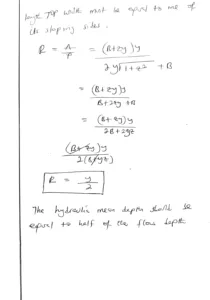 half TOP width must be equal to one of
its sloping sides.
R = A/P = (B+zy)y / 2y√1+z² + B
= (B+zy)y / B+2zy+B
= (B+zy)y / 2B+2yz
(B+zy)y / 2(B+yz)
R = y/2
The hydraulic mean depth must be
equal to half of the flow depth